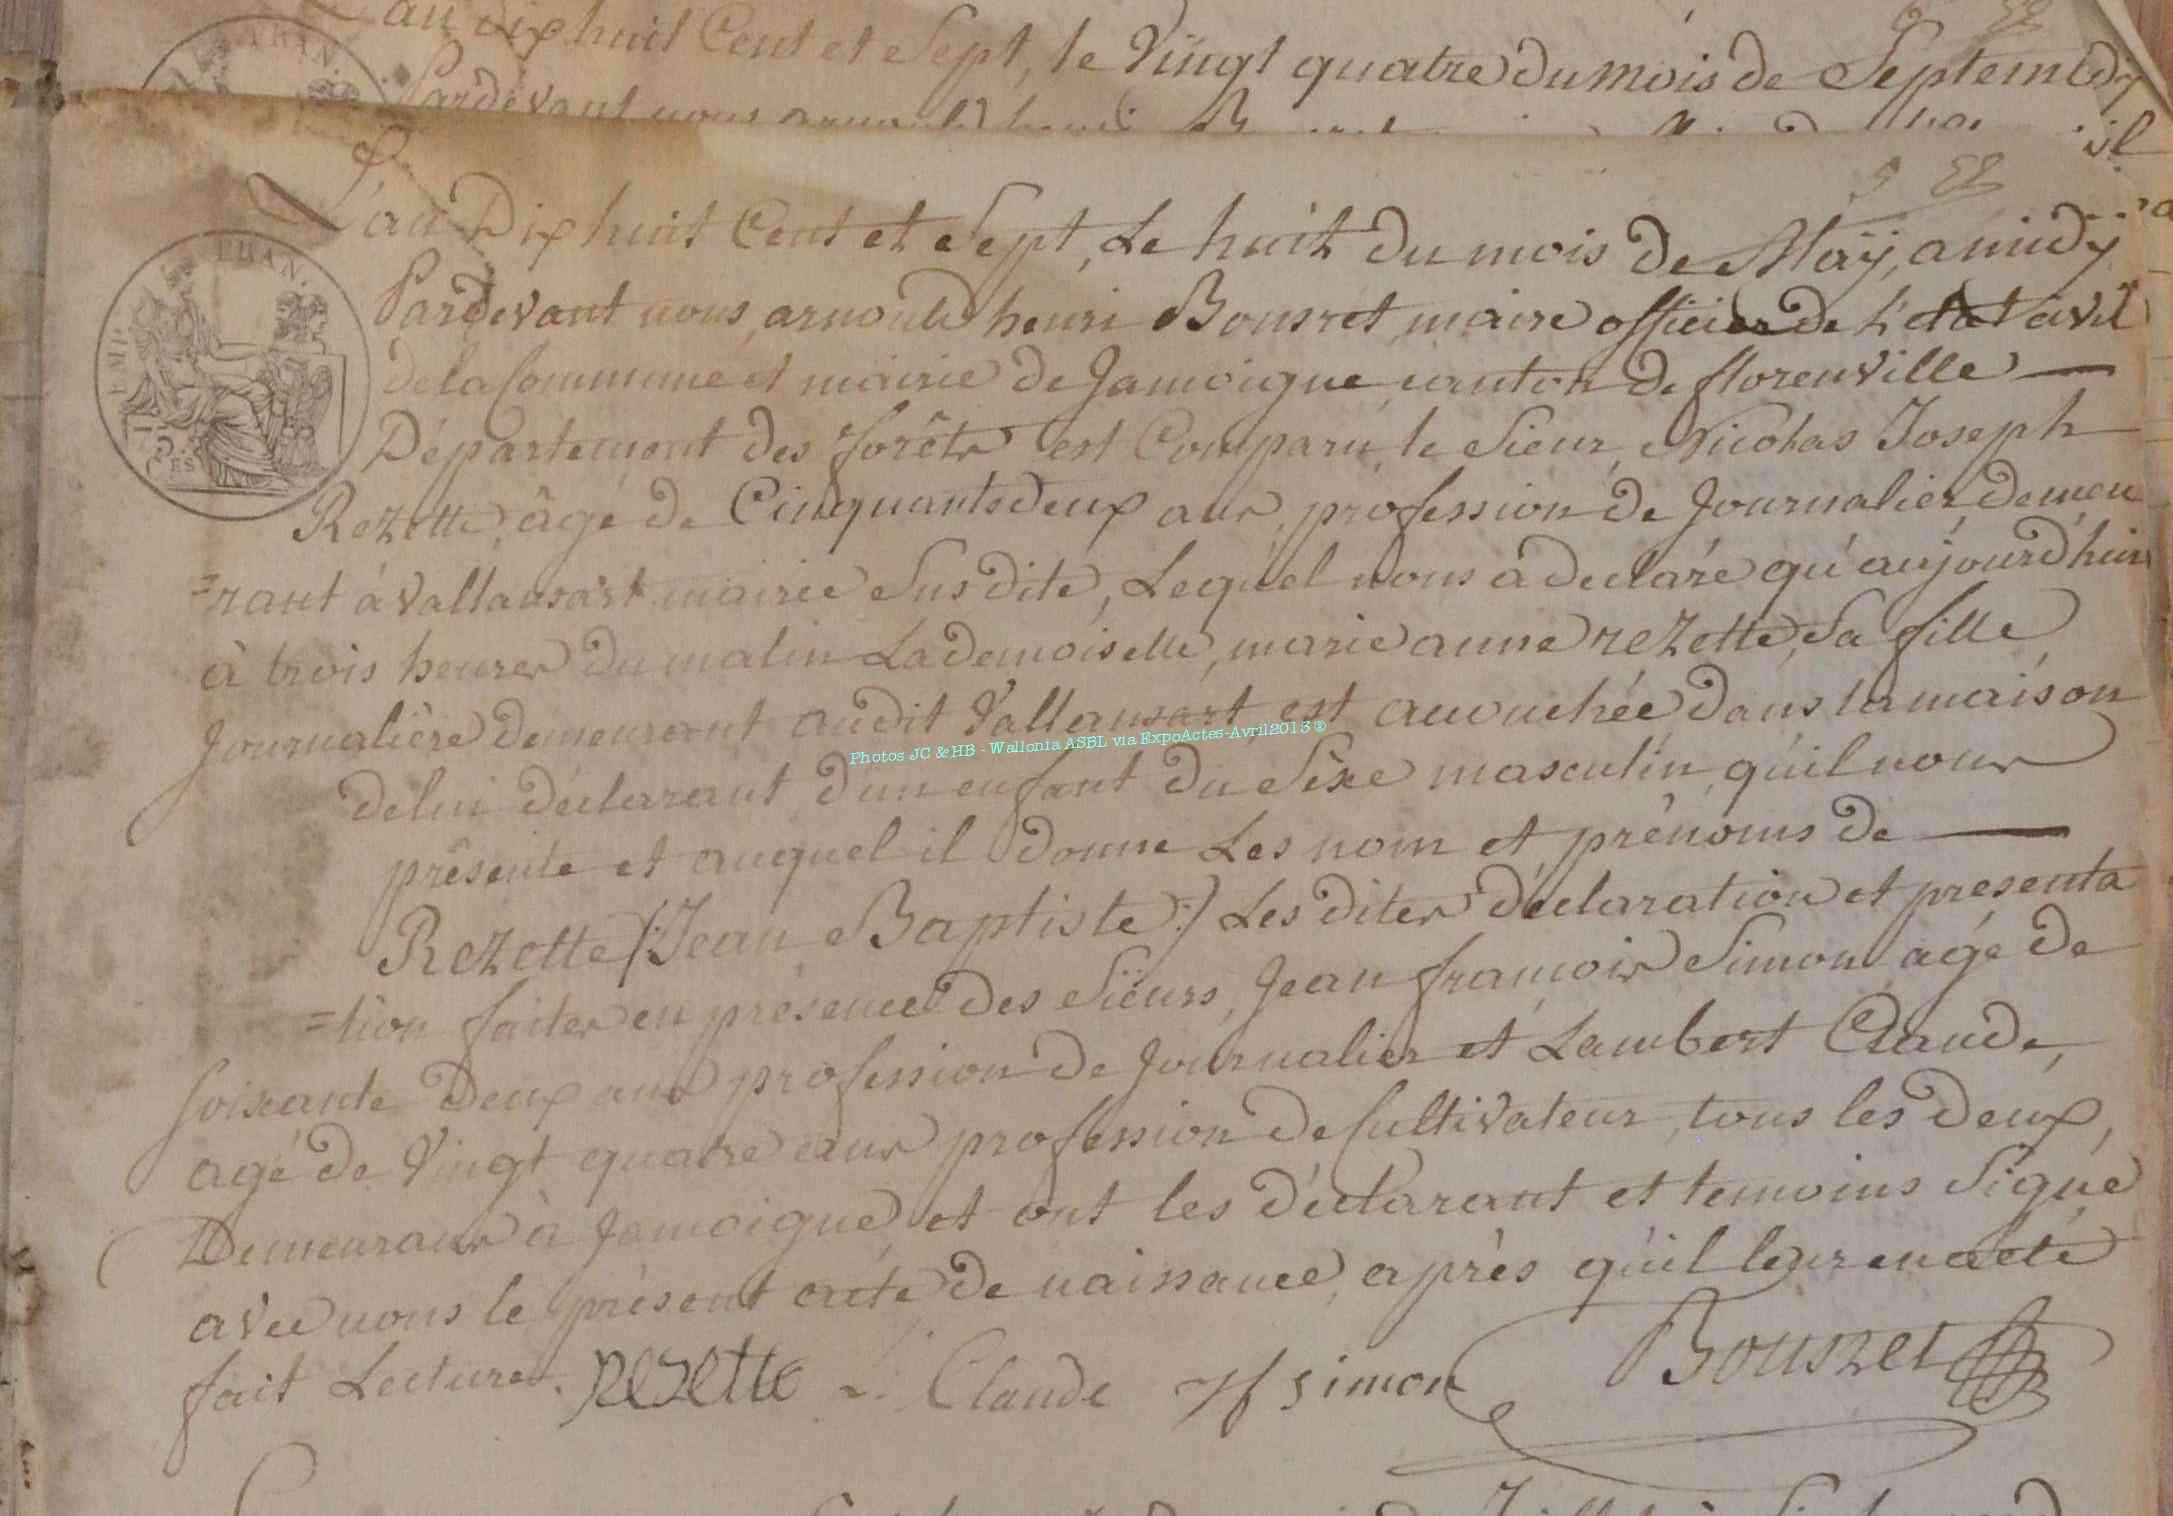 L'an dix huit Cent et Sept, le Vingt quatre du mois de Septem
Pardevant nous
L'an Dix huit Cent et Sept, Le huit du mois de Maÿ, a midy
Pardevant nous arnould henri Bousret maire officier de l'etat civil
de la Commune et mairie de Jamoigne, canton de florenville
Département des forêts est Comparu le Sieur Nicolas Joseph
Rezette, âgé de Cinquante deux ans, profession de Journalier, demeu
=rant à Vallansart mairie Susdite, Lequel nous a declaré qu'aujourd'huin
à trois heures du matin La demoiselle, marie anne rezette, Sa fille
Journalière demeurant audit Vallansart est accouchée dans la maison
Photos JC & HB - Wallonia ASBL via ExpoActes-Avril2013®
de lui déclarant, d'un enfant du Sexe masculin, qu'il nous
présente et auquel il donne Les nom et prénoms de
Rezette /:Jean Baptiste:/ Les dites déclaration et présenta
=tion faites en présence des Siëurs, Jean françois Simon agé de
soixante Deux ans profession de Journalier et Lambert Claude,
agé de Vingt quatre ans profession de Cultivateur, tous les deux,
Demeurans à Jamoigne, et ont les déclarant et temoins Signé
avec nous le présent acte de naissance, après qu'il leur en a eté
fait Lecture. rezette Claude J f simon Bousret
EMP. FRAN.